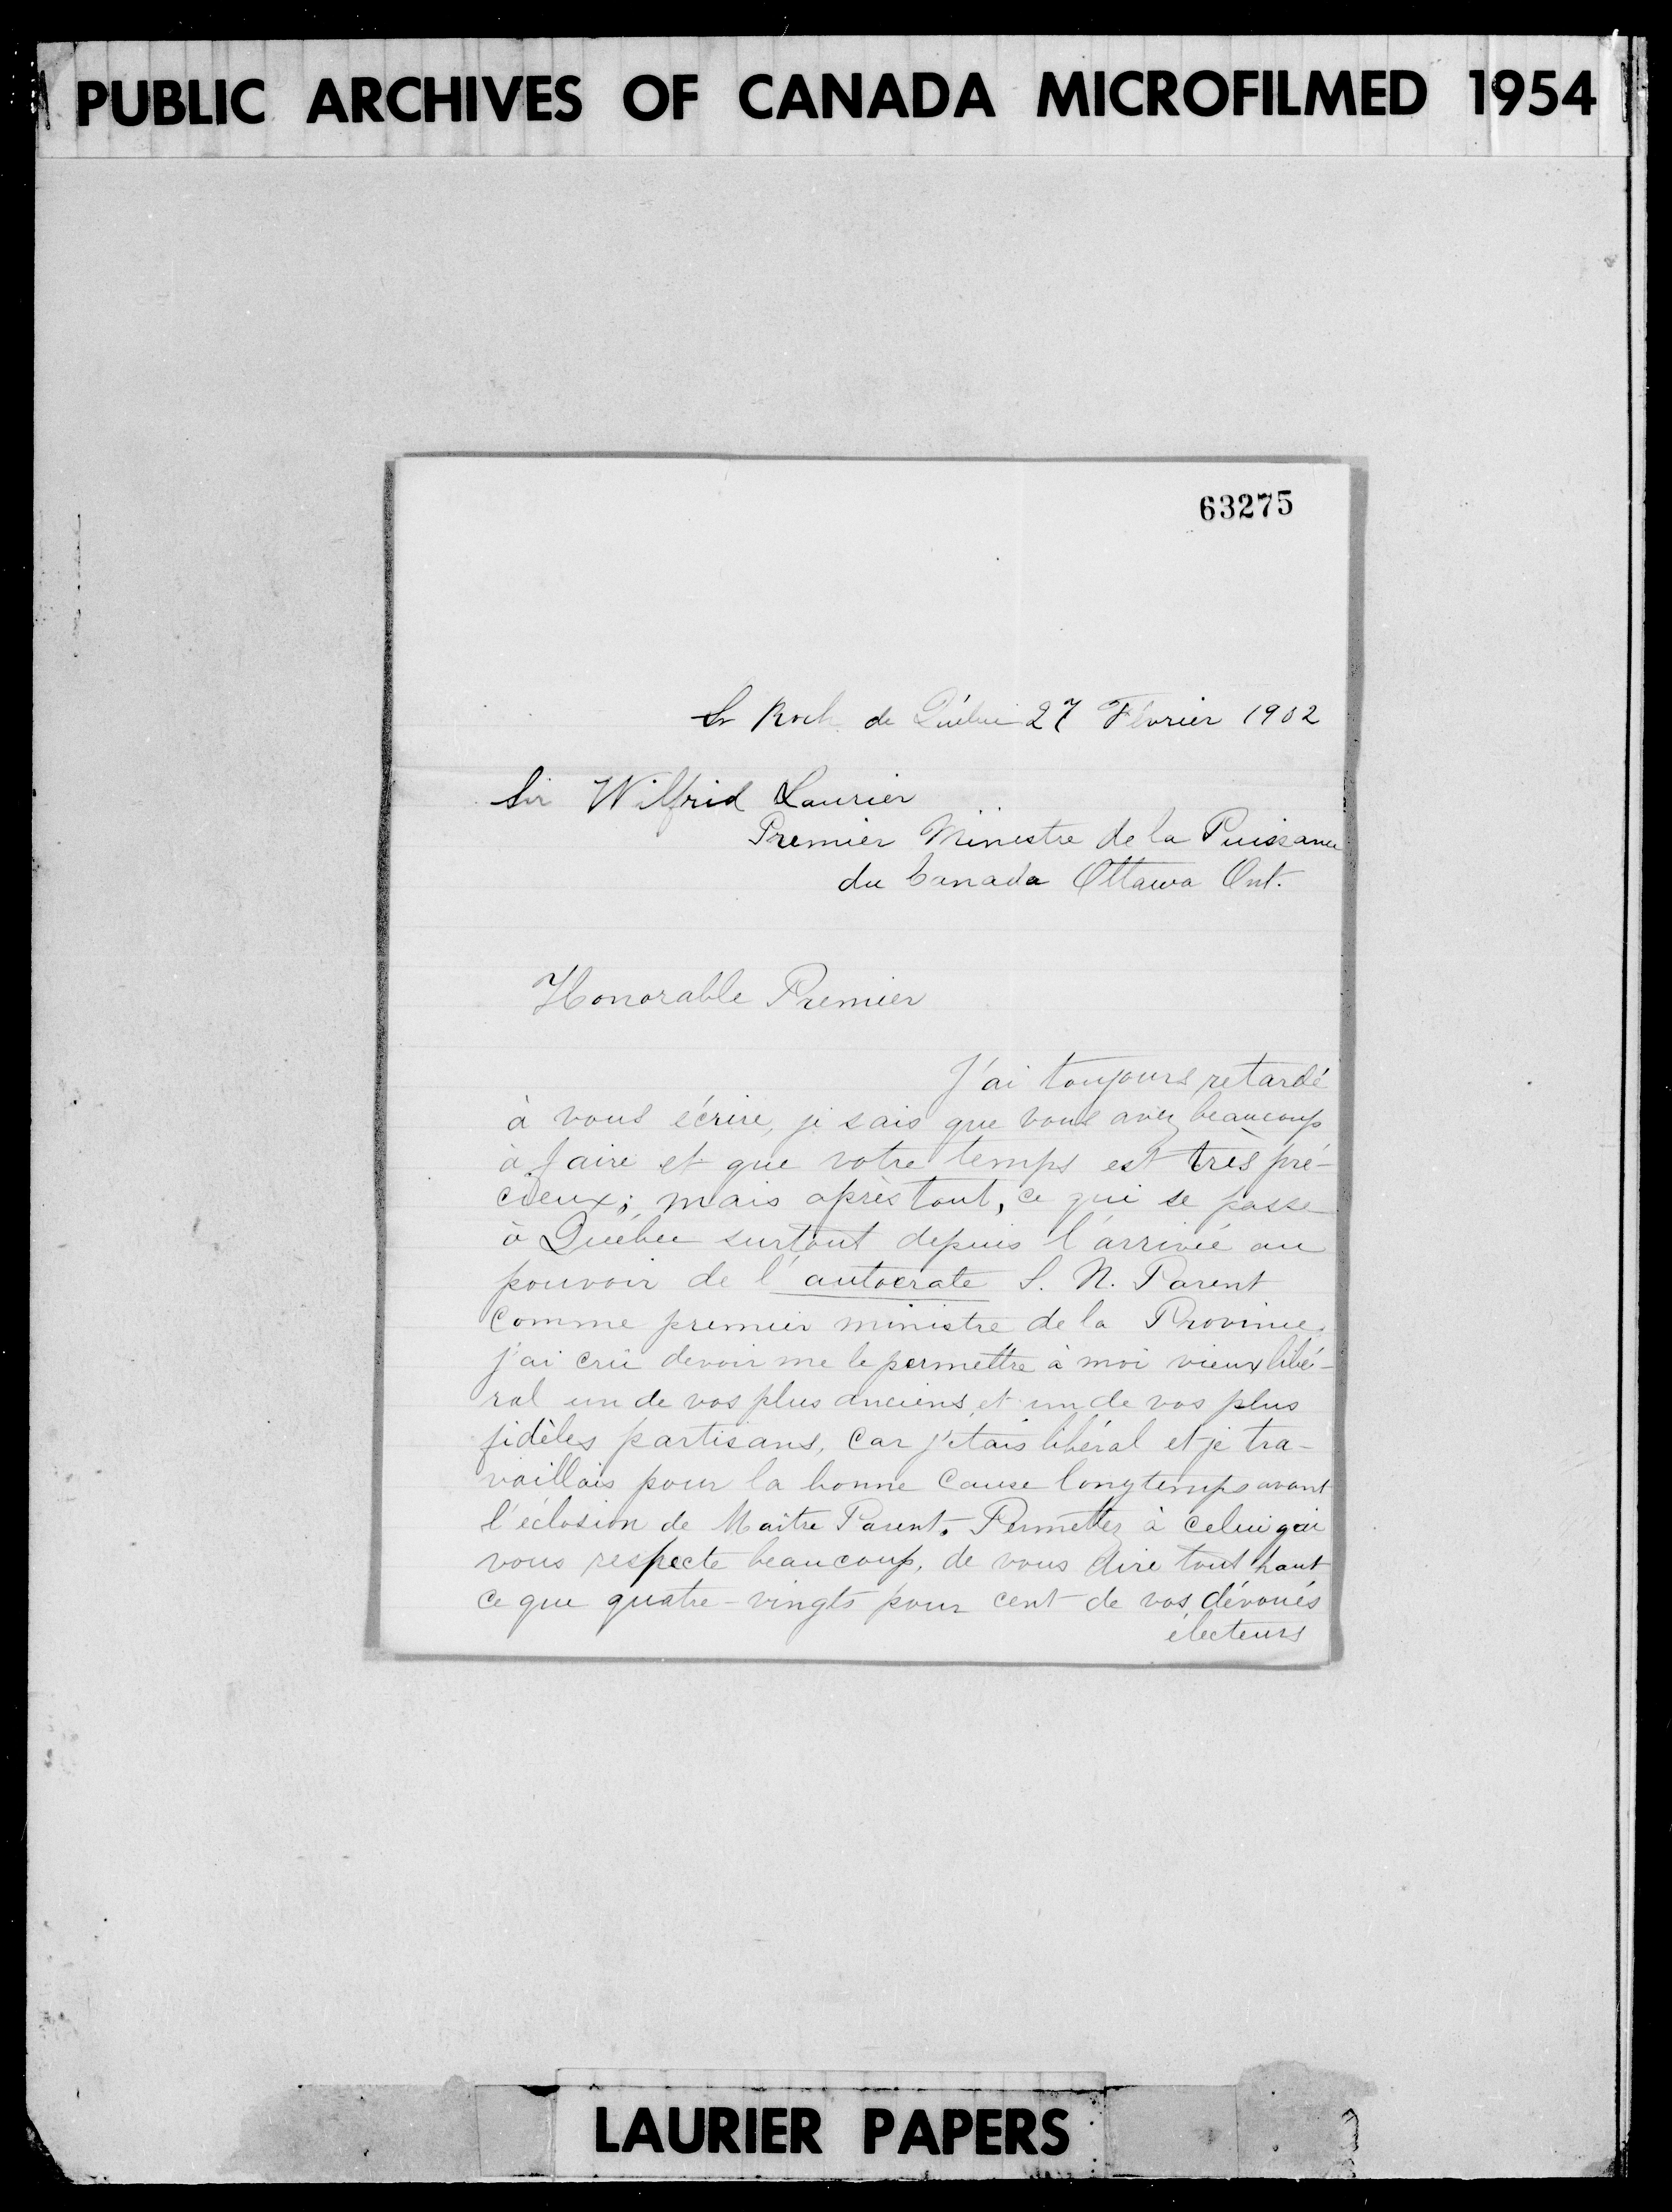 PUBLIC ARCHIVES OF CANADA MICROFILMED 1954
63275
St Roch de Québec 27 Février 1902
Sir Wilfrid Laurier
Premier Ministre de la Puissance
du Canada Ottawa Ont.
Honorable Premier
J'ai toujours retardé
à vous écrire, je sais que vous avez beaucoup
à faire et que votre temps est très pré-
cieux; mais après tout, ce qui se passe
à Québec surtout depuis l'arrivée au
pouvoir de l'autocrate S. N. Parent
comme premier ministre de la Province,
j'ai crû devoir me le permettre à moi vieux libé-
ral un de vos plus anciens, et un de vos plus
fidèles partisans, car j'étais libéral et je tra-
vaillais pour la bonne cause longtemps avant
l'éclosion de Maître Parent. Permettez à celui qui
vous respecte beaucoup, de vous dire tout haut
ce que quatre-vingts pour cent de vos dévoués
électeurs
LAURIER PAPERS